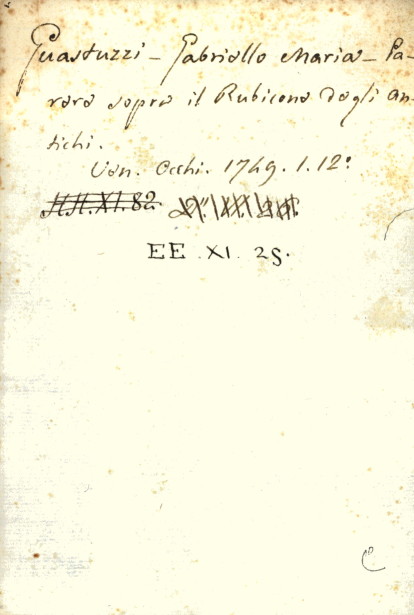 Guastuzzi – Gabriello Maria – Pa-
rere sopra il Rubicone degli An-
tichi.
Ven. Occhi. 1749. 1. 12º
H.H.XI.82.
EE . XI . 25.